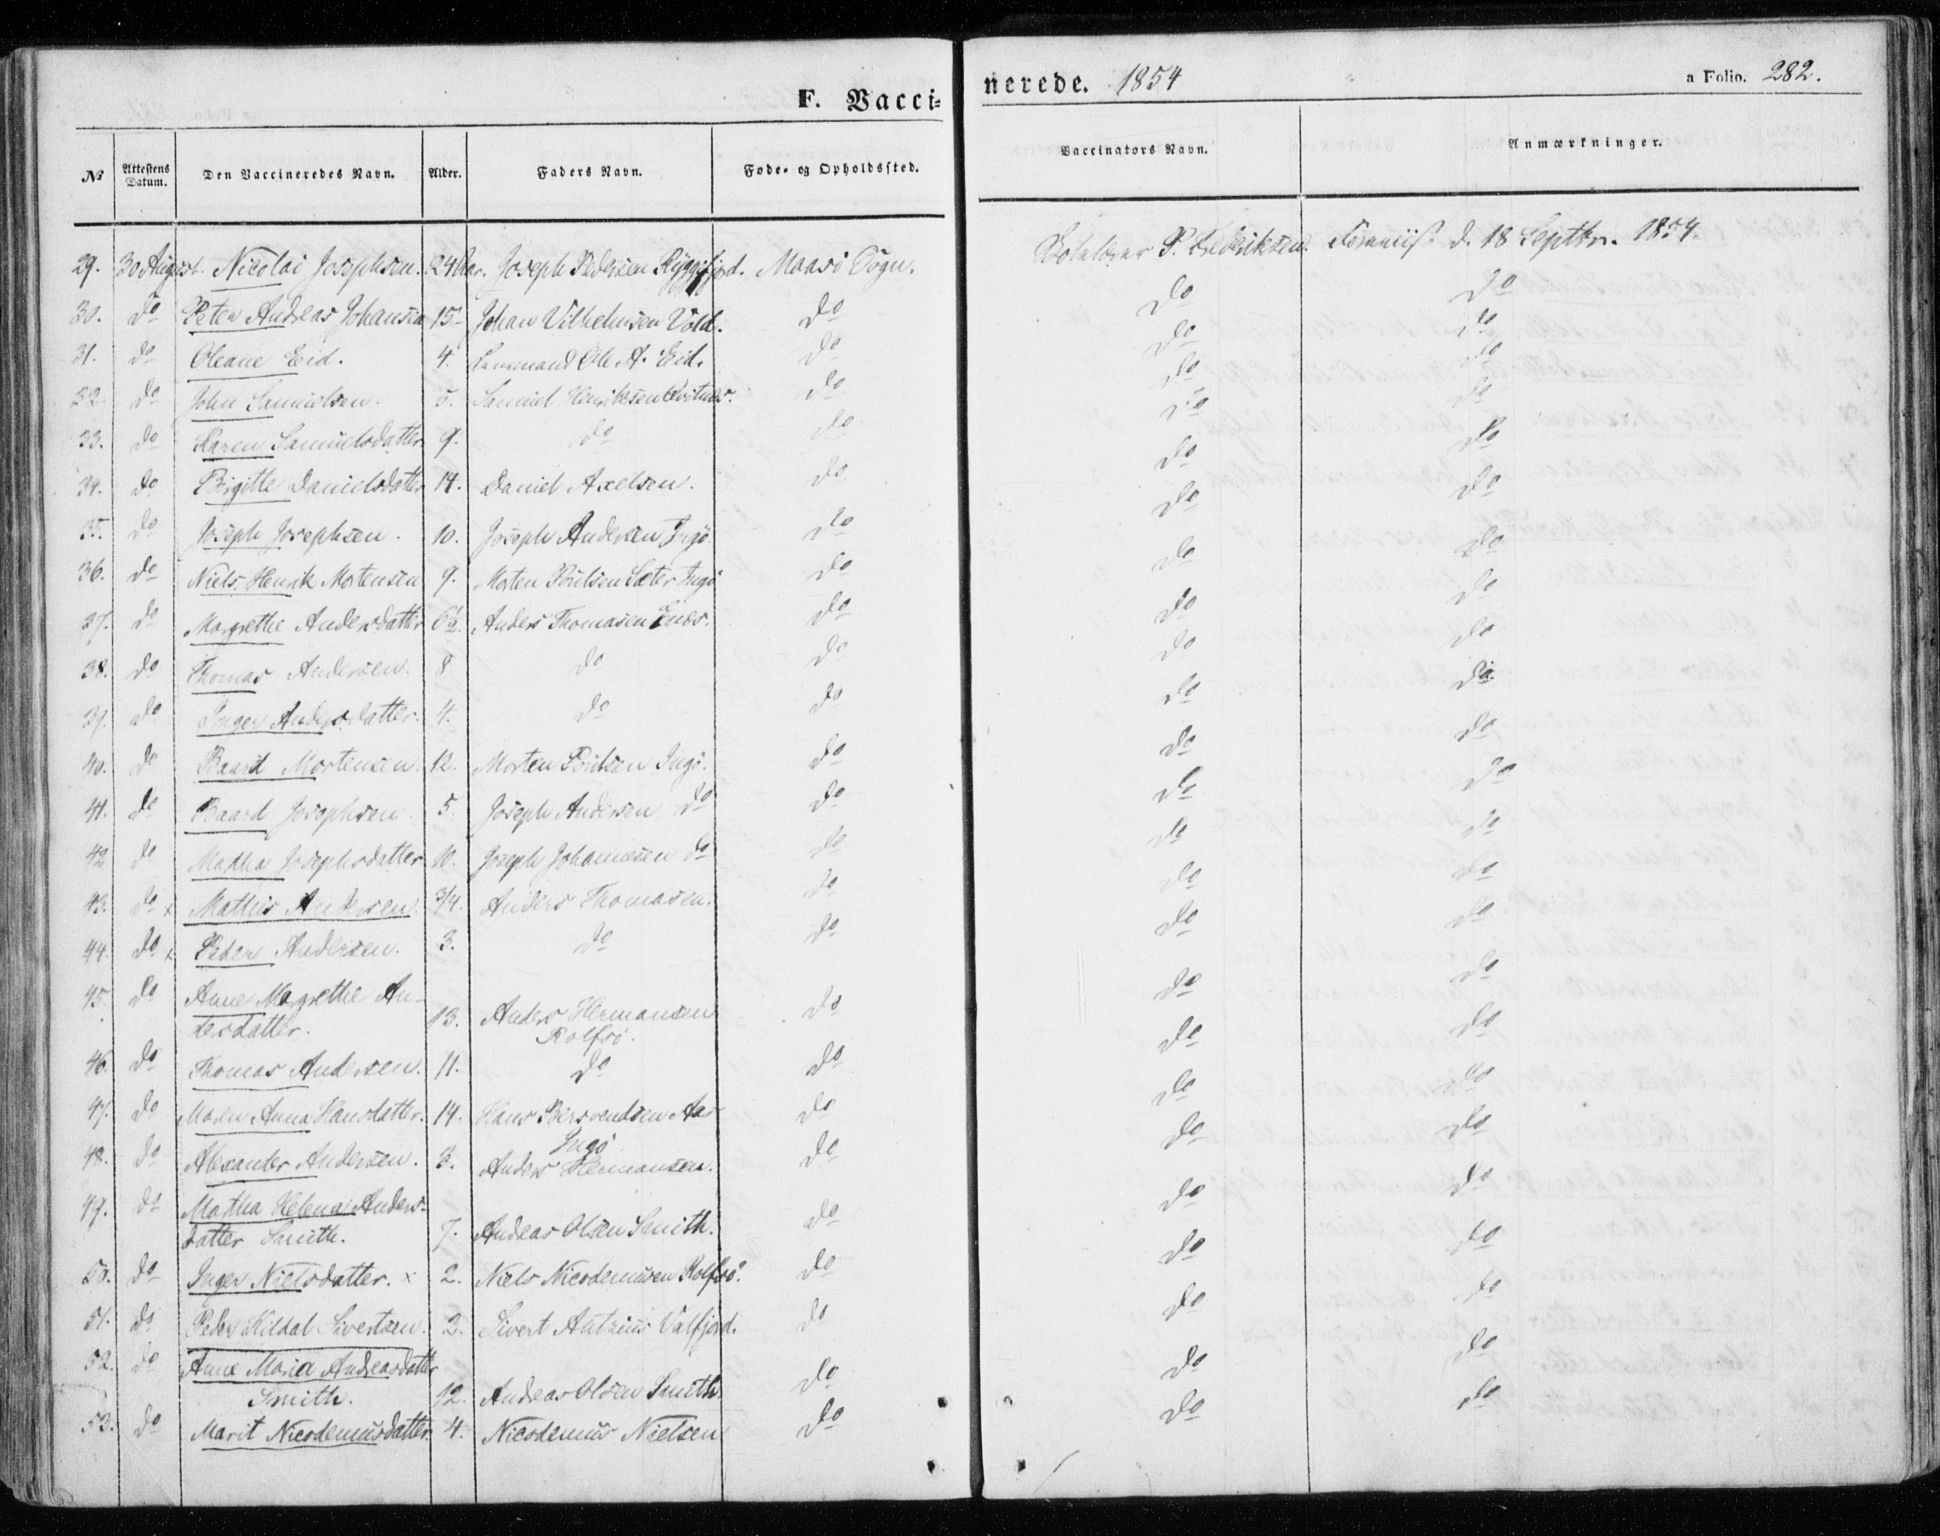 F. Vacci-
nerede. 1854
a Folio. 282.
No Attestens Datum. Den Vaccineredes Navn. Alder. Faders Navn. Føde- og Opholdssted. Vaccinators Navn. Anmærkninger.
29. 30 August. Nicolai Josephsen. 24 Aar. Joseph Pedersen Maasö Sogn. P. Fredriksen. d. 18 Septbr. 1854.
30. do Peter Andreas Johansen 15 Johan Vilhelmsen Vold. do do do
31. do Oleane Eid. 4. Ole A. Eid. do do do
32. do John Samuelsen. 5. Samuel Henriksen do do do
33. do Karen Samuelsdatter 9. do do do do
34. do Birgitte Danielsdatter 14. Daniel Axelsen. do do do
35. do Joseph Josephsen. 10. Joseph Andersen Ingö do do do
36. do Niels Henrik Mortensen 9. Morten Poulsen Sæter Ingö do do do
37. do Margrethe Andersdatter 6½. Anders Thomasen do do do
38. do Thomas Andersen. 8 do do do do
39. do Inger Andersdatter. 4. do do do do
40. do Baard Mortensen. 12. Morten Poulsen Ingö. do do do
41. do Baard Josephsen. 5. Joseph Andersen do do do do
42. do Martha Josephsdatter 10. Joseph Johannesen do do do do
43. do x Mathis Andersen. 3/4. Anders Thomasen. do do do
44. do x Peder Andersen. 3. do do do do
45. do Anne Margrethe An-
dersdatter. 13. Anders Hermansen do do do
Rolfsö.
46. do Thomas Andersen. 11. do do do do
47. do Maren Anna Hansdatter. 14. Hans Bersvendsen do do do
Ingö
48. do Alexander Andersen. 3. Anders Hermansen. do do do
49. do Martha Helena Anders-
datter Smith. 7. Andreas Olsen Smith. do do do
50. do Inger Nielsdatter. x 2. Niels Nicodemusen Rolfsö. do do do
51. do Peder Kildal Sivertsen. 2. Sivert Antzius Valfjord. do do do
52. do Anne Maria Andreasdatter
Smith. 12. Andreas Olsen Smith. do do do
53. do Marit Nicodemusdatter. 4. Nicodemus Nielsen do do do